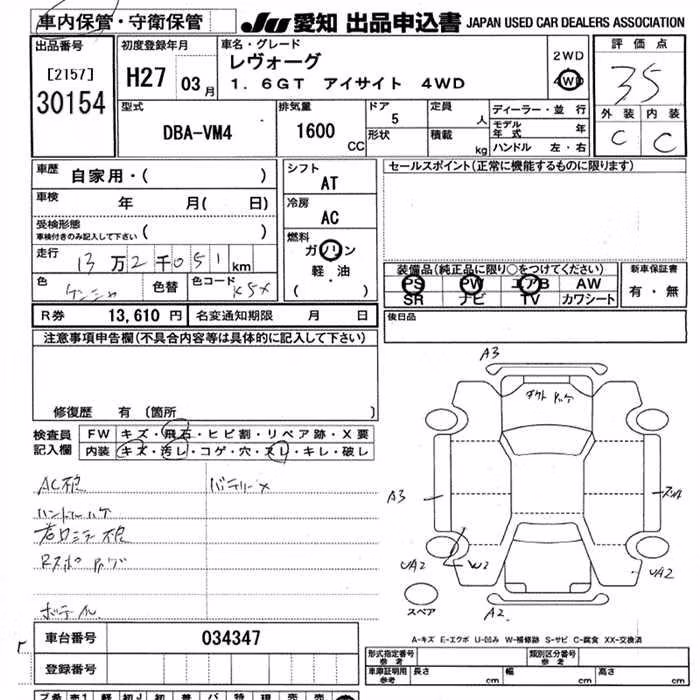 車内保管・守衛保管
JU 愛知 出品申込書 JAPAN USED CAR DEALERS ASSOCIATION
出品番号
[2157]
30154
初度登録年月
H27 03 月
車名・グレード
レヴォーグ
1.6GT アイサイト 4WD
2WD
4WD
評価点
3.5
外装 内装
C C
型式
DBA-VM4
排気量
1600 CC
ドア
5
形状
定員
人
積載
kg
ディーラー・並行
モデル年式 年
ハンドル 左・右
車歴
自家用・( )
車検
年 月( 日)
受検形態
車検付きのみ記入して下さい ( )
走行
13万2千051 km
色
色替
色コード
シフト
AT
冷房
AC
燃料
ガソリン
軽・油
( )
セールスポイント(正常に機能するものに限ります)
装備品(純正品に限り○をつけてください)
PS PW エアB AW
SR ナビ TV カワシート
新車保証書
有・無
後日品
R券 13,610 円
名変通知期限 月 日
注意事項申告欄(不具合内容等は具体的に記入して下さい)
修復歴 有 (箇所 )
検査員
記入欄
FW キズ・飛石・ヒビ割・リペア跡・X要
内装 キズ・汚レ・コゲ・穴・スレ・キレ・破レ
バッテリーX
A3
A3
UA2
W2
UA2
A2
スペア
A-キズ E-エクボ U-凹み W-補修跡 S-サビ C-腐食 XX-交換済
車台番号 034347
登録番号
形式指定番号
参考
類別区分番号
参考
車庫証明用
参考
長さ
幅
高さ
cm